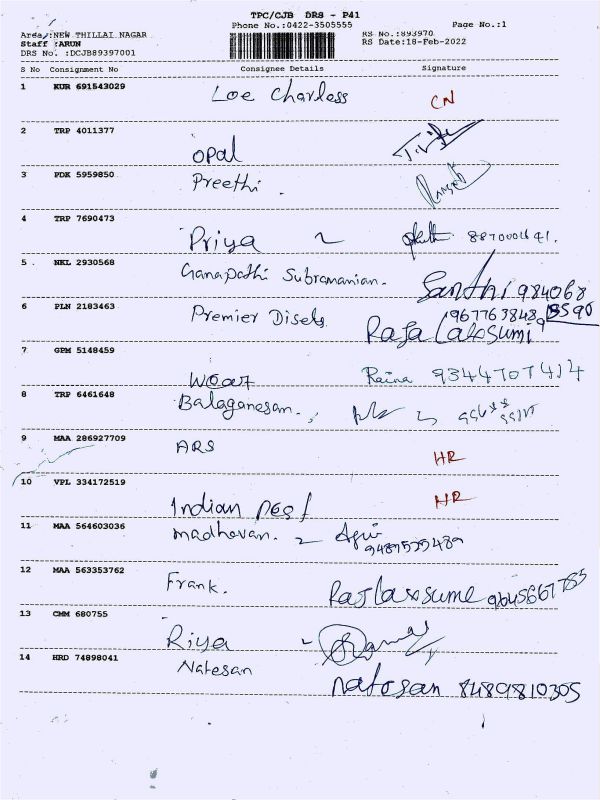 TPC/CJB DRS - P41
Phone No.:0422-3505555
Page No.:1
Area/:NEW THILLAI NAGAR
RS No.:893970
Staff :ARUN
RS Date:18-Feb-2022
DRS No. :DCJB89397001
S No Consignment No Consignee Details Signature
1 KUR 691543029 Loe Charless CN
2 TRP 4011377 Opal
3 PDK 5959850 Preethi.
4 TRP 7690473 Priya
5 NKL 2930568 Ganapathi Subramanian. Santhi 984068
8590
6 PLN 2183463 Premier Disels 9677638489
Raja
7 GPM 5148459 Wear Raina 9344707414
8 TRP 6461648 Balaganesan.
9 MAA 286927709 ARS HR
10 VPL 334172519 Indian Pest HR
11 MAA 564603036 Madhavan.
12 MAA 563353762 Frank.
13 CMM 680755 Riya
14 HRD 74898041 Natesan natosan 8489810305